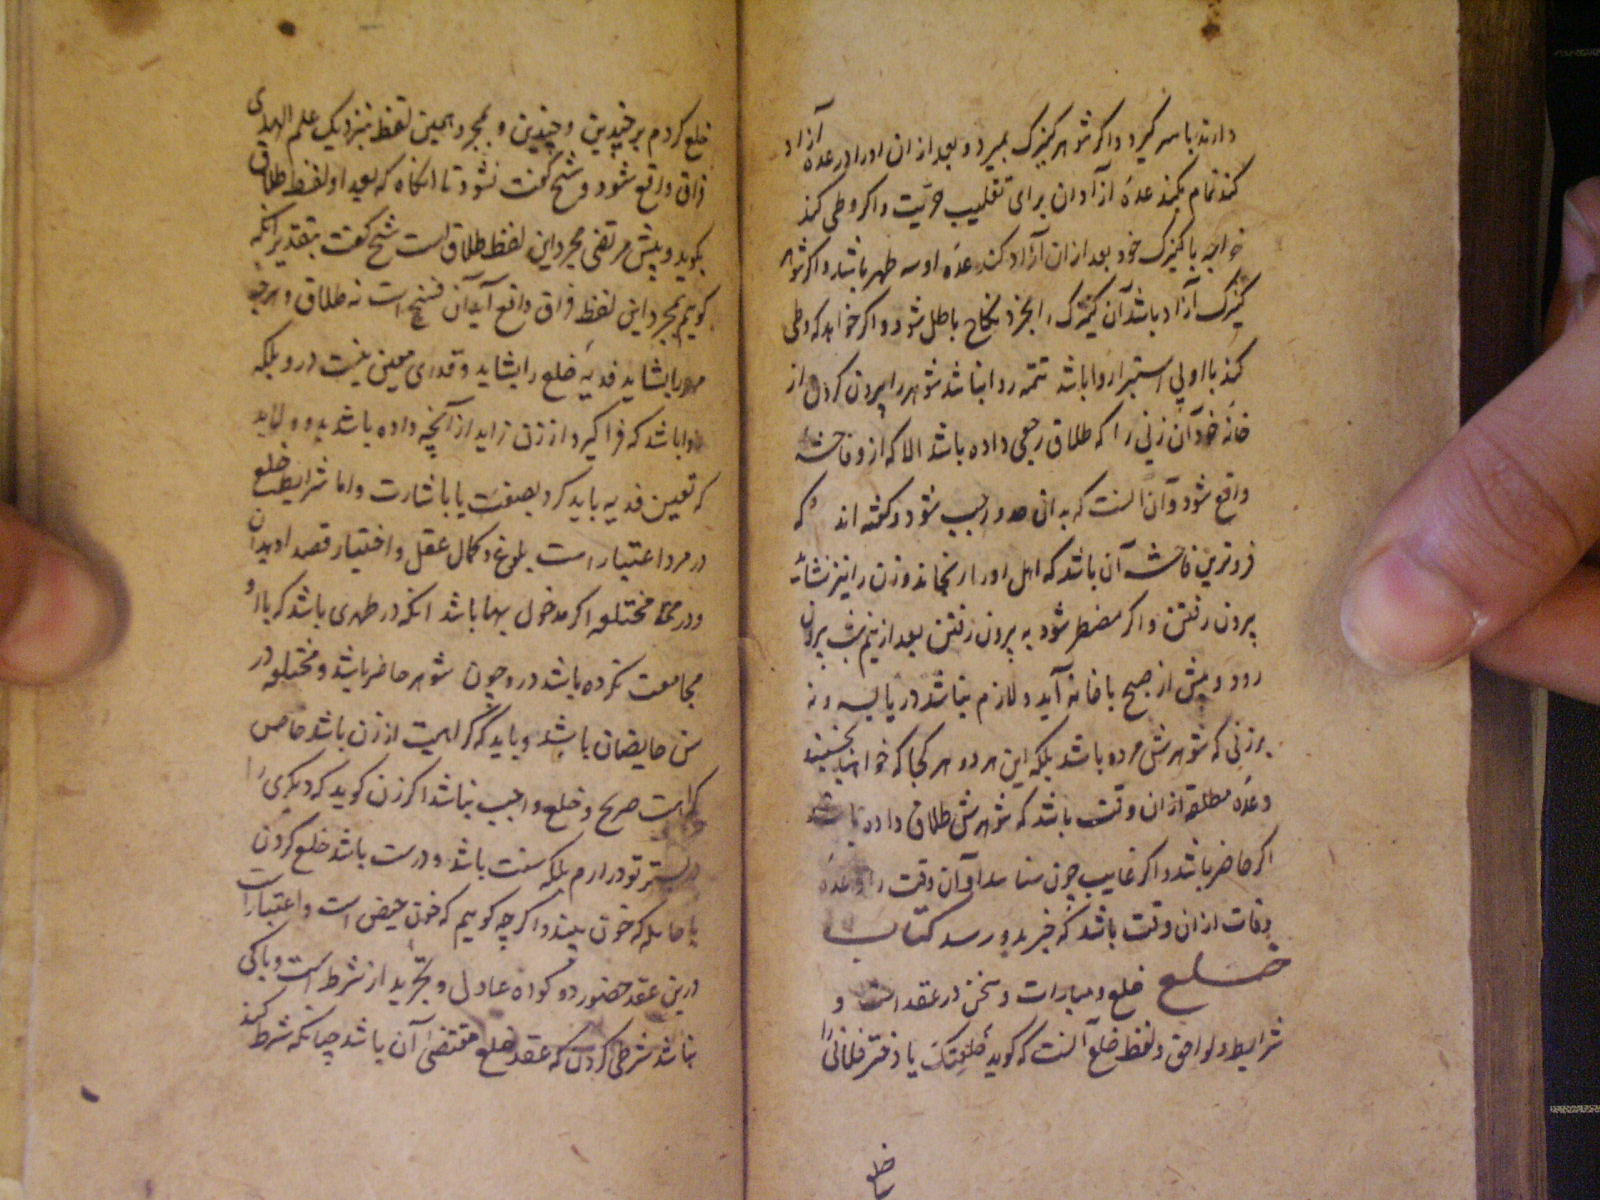 دارند باسر گیرد و اگر شوهر کنیزک بمیرد و بعد از ان او را در عده آزاد
کند تمام بکند عدهٔ آزادان برای تغلیب حریت و اگر وطی کند
خواجه با کنیزک خود بعد از ان آزاد کند عدهٔ او سه طهر باشد و اگر شوهر
کنیزک آزاد باشد آن کنیزک را بخرد نکاح باطل شود و اگر خواهد که وطی
کند با او بی استبرا روا باشد تتمه روا نباشد شوهر را بیرون کردن از
خانهٔ خود آن زنی را که طلاق رجعی داده باشد الا که از و فاحشهٔ
واقع شود و آن آنست که بدانی حد واجب شود و گفته اند که
فروترین فاحشه آن باشد که اهل او را برنجاند و زن را نیز نشاید
بیرون رفتن و اگر مضطر شود به بیرون رفتن بعد از نیم شب بیرون
رود و پیش از صبح با خانه آید و لازم نباشد در یایسه و نه
بر زنی که شوهرش مرده باشد بلکه این هر دو هر کجا که خواهند بخسبند
و عدهٔ مطلقه از ان وقت باشد که شوهرش طلاق داده باشد
اگر حاضر باشد و اگر غایب چون شناسد آن وقت را و عدهٔ
وفات از ان وقت باشد که خبر بدو رسد کتاب
خلع خلع و مبارات و سخن در عقد است و
شرایط و لواحق و لفظ خلع آنست که گوید خلعتک یا دختر فلانی را
خلع
خلع کردم بر چندین و چندین و بمجرد همین لفظ بنزدیک علم الهدی
فراق واقع شود و شیخ گفت نشود تا انگاه که بعد او لفظ طلاق
بگوید و پیش مرتضی مجرد این لفظ طلاق است شیخ گفت بتقدیر انکه
گویم بمجرد این لفظ فراق واقع آید آن فسخ است نه طلاق و هرچه
مهر را بشاید فدیهٔ خلع را بشاید و قدری معین نیست درو بلکه
روا باشد که فرا گیرد از زن زاید از آنچه داده باشد بدو و لابد
که تعین فدیه باید کرد بصفت یا باشارت و اما شرایط خلع
در مرد اعتبار است بلوغ و کمال عقل و اختیار و قصد او بدان
و در مختلعه اگر مدخول بها باشد انکه در طهری باشد که با او
مجامعت نکرده باشد درو چون شوهر حاضر باشد و مختلعه در
سن حایضان باشد و باید که کراهیت از زن باشد خاص
کراهت صریح و خلع واجب نباشد اگر زن گوید که دیگری را
در بستر تو در ارم بلکه سنت باشد و درست باشد خلع کردن
با حامله که خون بیند و اگر چه گوییم که خون حیض است و اعتبار است
درین عقد حضور دو گواه عادل و تجرید از شرط است و باکی
نباشد شرطی کردن که عقد خلع مقتضی آن باشد چنانکه شرط کند